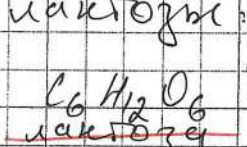 лактозы
C6 H12 O6
лактоза